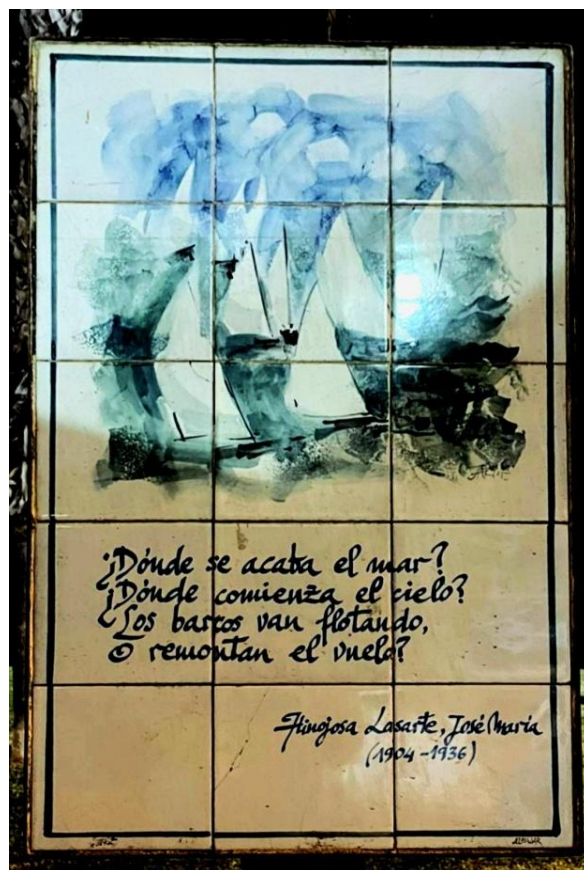 ¿Dónde se acaba el mar?
¿Dónde comienza el cielo?
¿Los barcos van flotando,
o remontan el vuelo?
Hinojosa Lasarte, José María
(1904-1936)